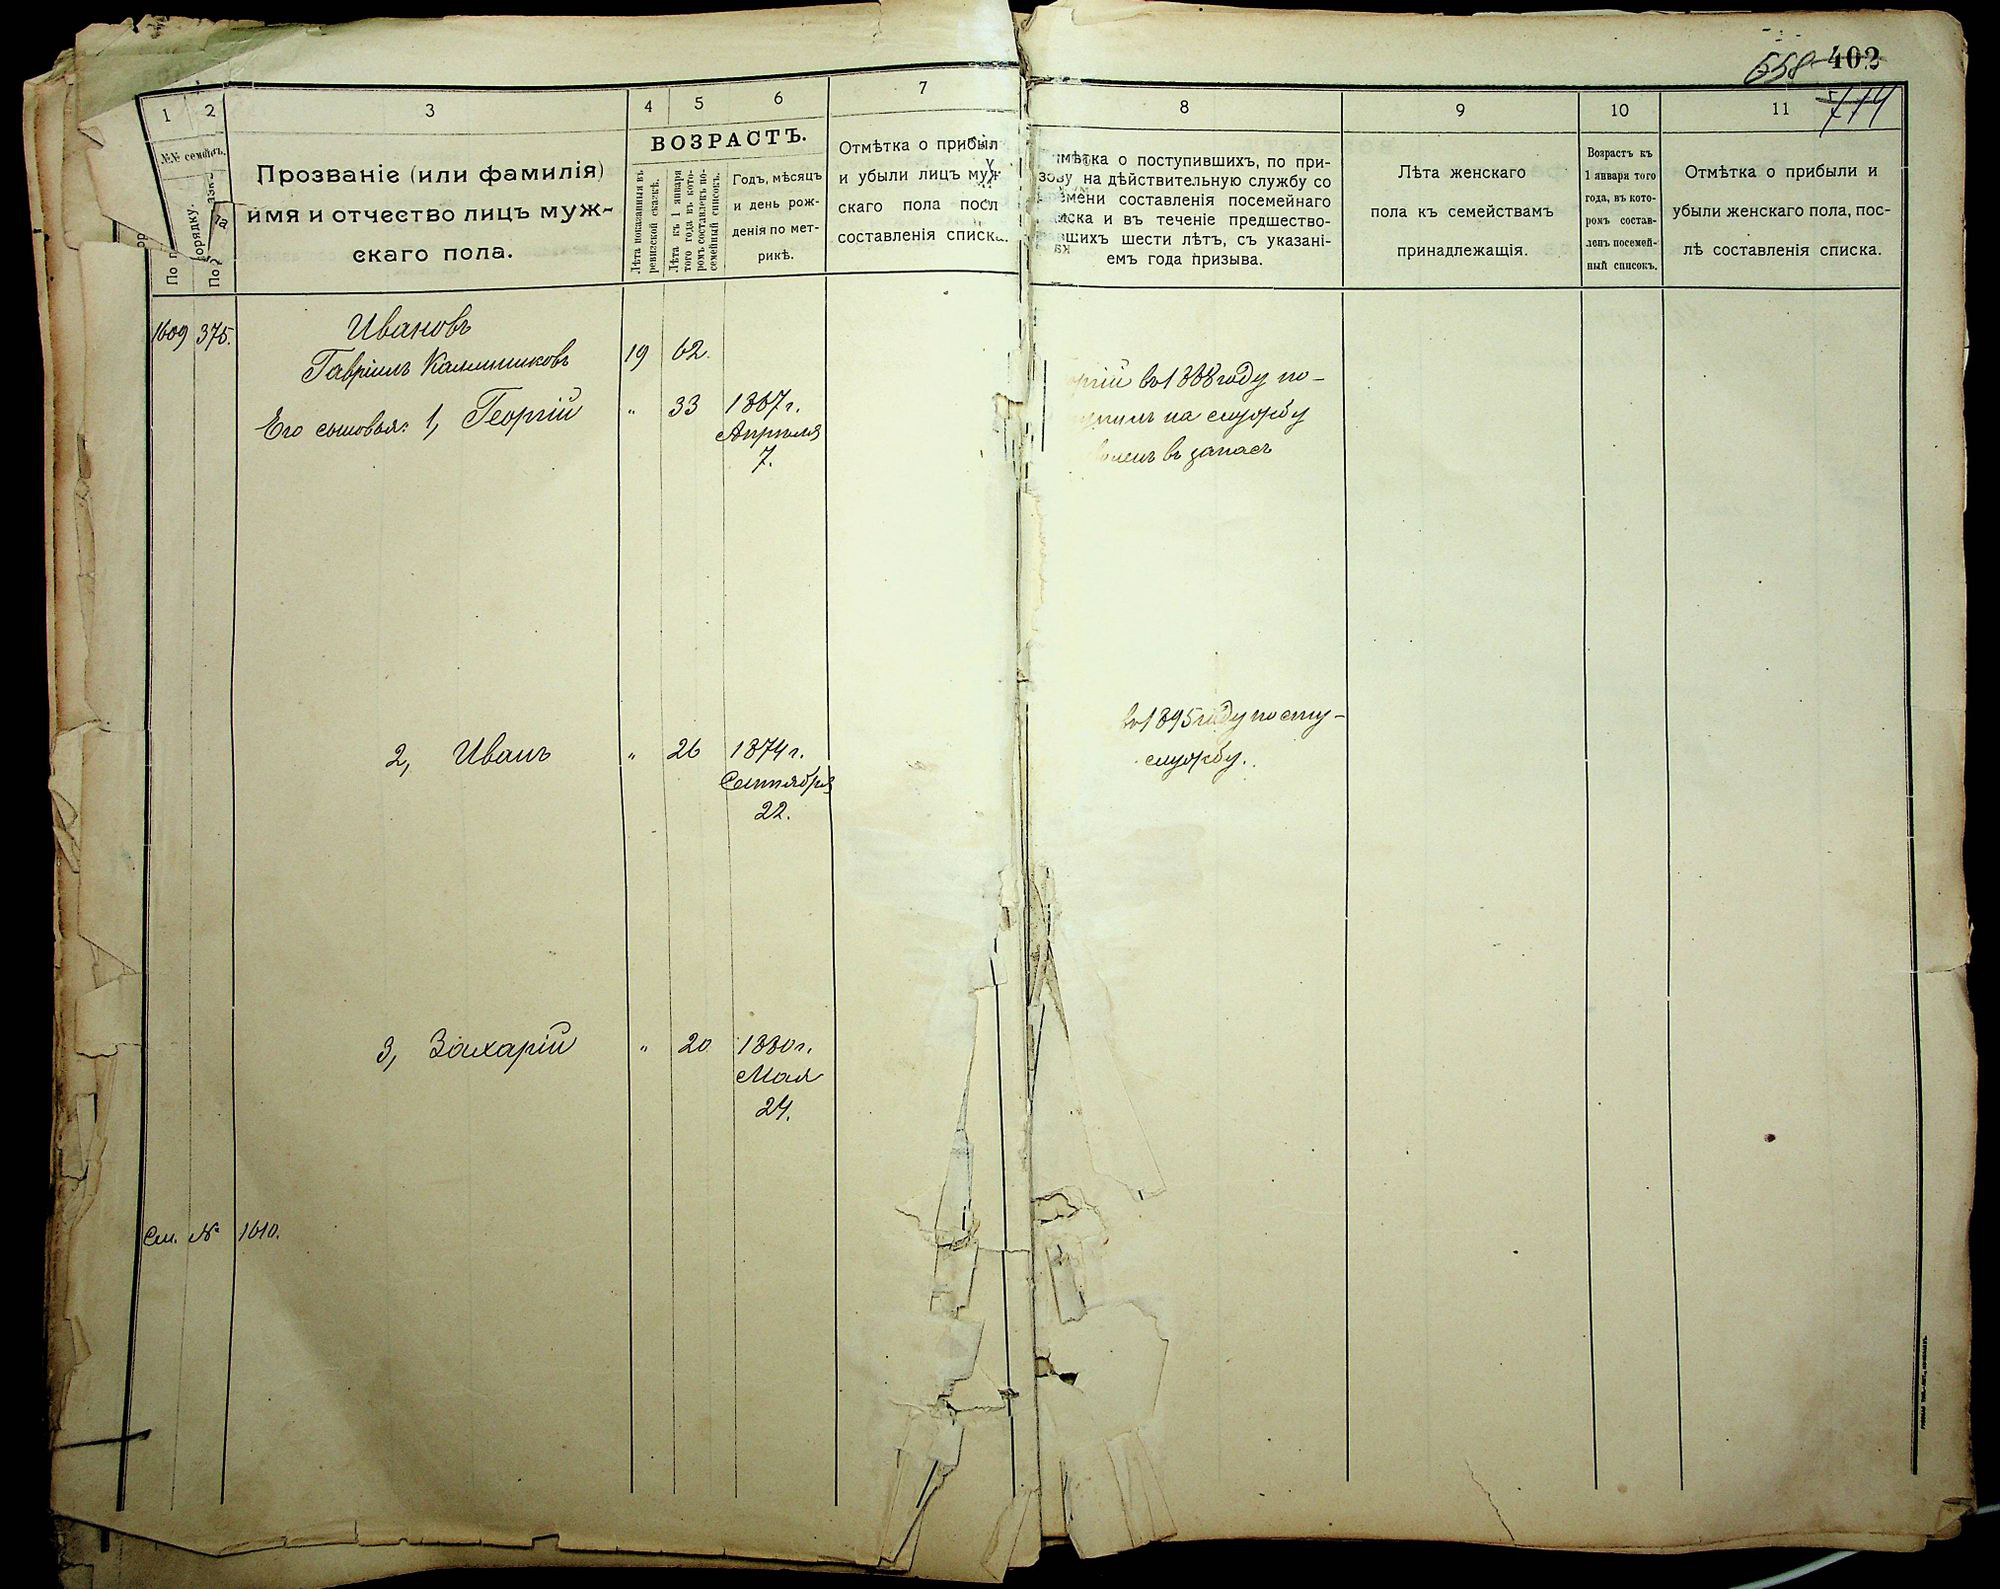 658 402
714
1 2 3 4 5 6 7 8 9 10 11
№№ семействъ.
По порядку.
Прозваніе (или фамилія)
имя и отчество лицъ муж-
скаго пола.
ВОЗРАСТЪ.
Лѣта показанныя въ
ревизской сказкѣ.
Лѣта къ 1 января
того года въ кото-
ромъ составленъ по-
семейный списокъ.
Годъ, мѣсяцъ
и день рож-
денія по мет-
рикѣ.
Отмѣтка о прибыл
и убыли лицъ муж
скаго пола посл
составленія списка.
мѣтка о поступившихъ, по при-
зову на дѣйствительную службу со
емени составленія посемейнаго
иска и въ теченіе предшество-
вшихъ шести лѣтъ, съ указані-
емъ года призыва.
Лѣта женскаго
пола къ семействамъ
принадлежащія.
Возрастъ къ
1 января того
года, въ кото-
ромъ состав-
ленъ посемей-
ный списокъ.
Отмѣтка о прибыли и
убыли женскаго пола, пос-
лѣ составленія списка.
1609 375. Ивановъ
Гавріилъ Калинниковъ 19 62.
Его сыновья: 1, Георгій " 33 1867 г.
Апрѣля
7.
ргій въ 1888 году по-
упилъ на службу
воленъ въ запасъ
2, Иванъ " 26 1874 г.
Сентября
22.
въ 1895 году посту-
службу.
3, Захарій " 20 1880 г.
Мая
24.
См. № 1610.